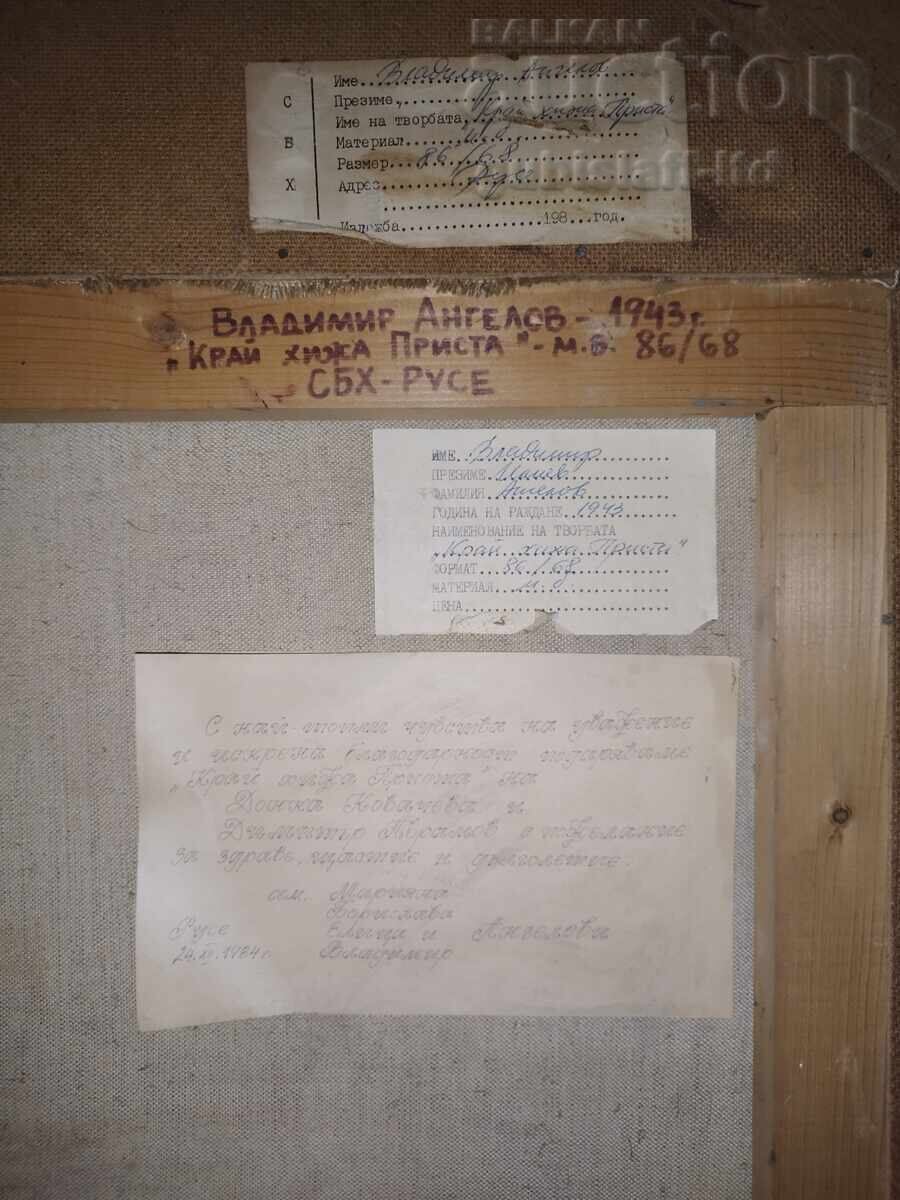 BALKAN
auction
С
В
Х
Име..Владимир Ангелов
Презиме
Име на творбата "Край хижа Приста"
Материал...м.б.
Размер...86/68
Адрес.......Русе
Изложба..................198...год.
ВЛАДИМИР АНГЕЛОВ - 1943 г.
„КРАЙ ХИЖА ПРИСТА" - м.б. 86/68
СБХ-РУСЕ
ИМЕ..Владимир
ПРЕЗИМЕ
ФАМИЛИЯ..Ангелов
ГОДИНА НА РАЖДАНЕ..1943
НАИМЕНОВАНИЕ НА ТВОРБАТА
„Край хижа Приста"
ФОРМАТ...86/68
МАТЕРИАЛ...м.б.
ЦЕНА
С най-топли чувства на уважение
и искрена благодарност подаряваме
„Край хижа Приста" на
Донка Ковачева и
Димитър Аврамов с пожелание
за здраве, щастие и дълголетие.
сем. Марияна
Борислава
Русе Елеци и Ангелови
24.XI.1984 г. Владимир